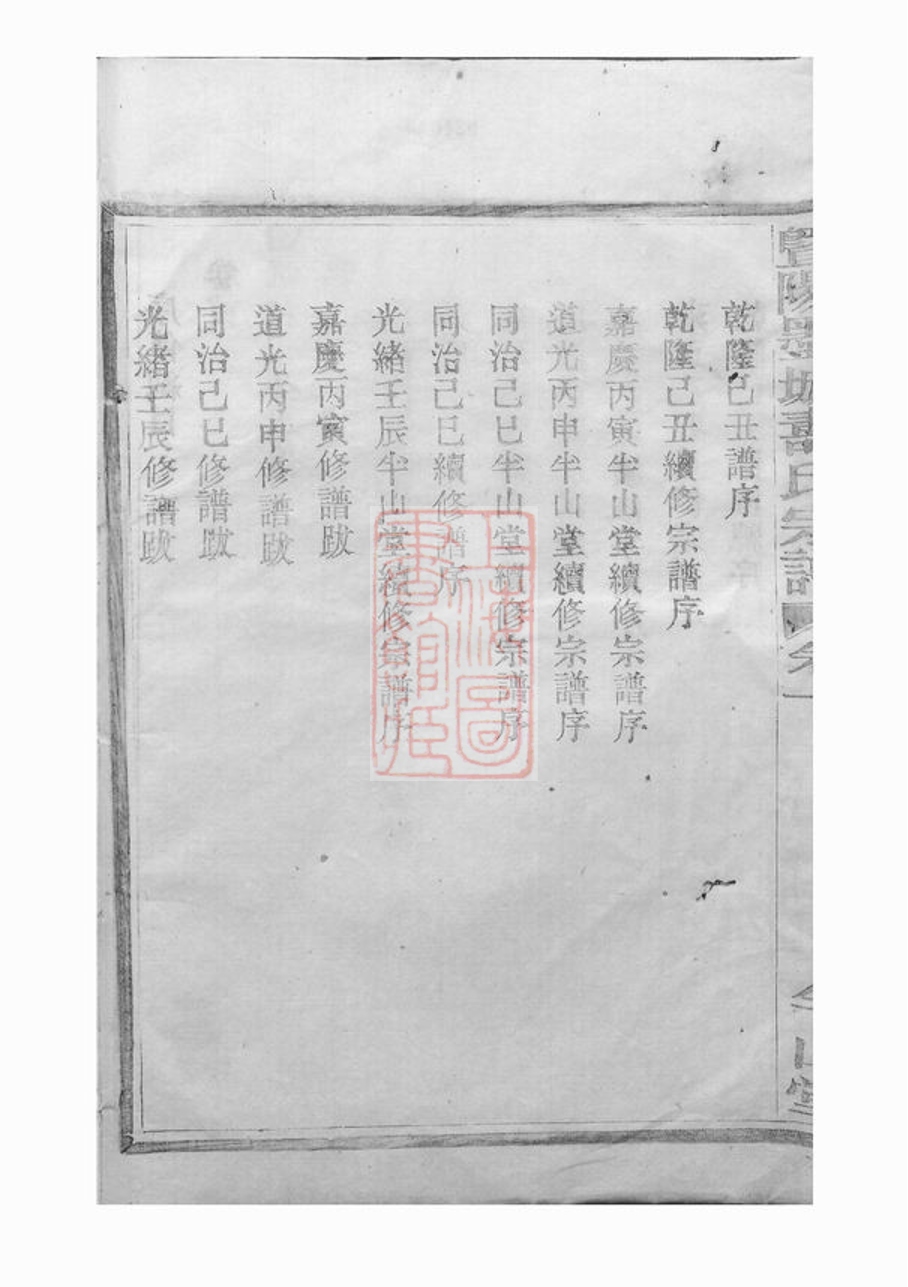 暨陽墨城壽氏宗譜
卷一
半山堂
乾隆己丑譜序
乾隆己丑續修宗譜序
嘉慶丙寅半山堂續修宗譜序
道光丙申半山堂續修宗譜序
同治己巳半山堂續修宗譜序
同治己巳續修譜序
光緒壬辰半山堂續修宗譜序
嘉慶丙寅修譜跋
道光丙申修譜跋
同治己巳修譜跋
光緒壬辰修譜跋
上海圖書館藏